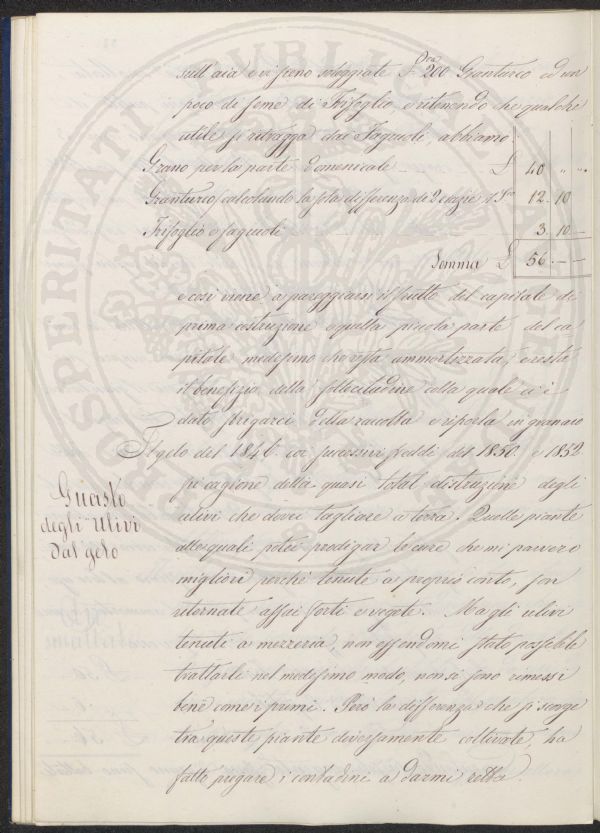 sull'aia e vi sono soleggiate S.a 200 Granturco ed un
poco di seme di Trifoglio, e ritenendo che qualche
utile si ritragga dai Fagiuoli, abbiamo:
Grano per la parte Domenicale £ 40 " "
Granturco calcolando la sola differenza di 2 crazie 12. 10
Trifoglio e fagiuoli 3. 10 —
Somma £ 56 — —
e così viene a pareggiarsi il frutto del capitale di
prima costruzione e quella piccola parte del ca-
pitale medesimo che resta ammortizzata, e resta
il benefizio della sollecitudine colla quale ci è
dato sbrigarci della raccolta e riporla in granaio
Il gelo del 1846. coi successivi freddi del 1850. e 1852
fu cagione della quasi total distruzione degli
ulivi che dovei tagliare a terra. Quelle piante
alle quali potei prodigar le cure che mi parvero
migliori perchè tenute a proprio conto, son
ritornate assai forti e vegete. Ma gli ulivi
tenuti a mezzeria, non essendomi stato possibile
trattarli nel medesimo modo, non si sono rimessi
bene come i primi. Però la differenza che si scorge
tra queste piante diversamente coltivate, ha
fatto piegare i contadini a darmi retta.
Guasto
degli Ulivi
dal gelo
PROSPERITATI PUBLICAE